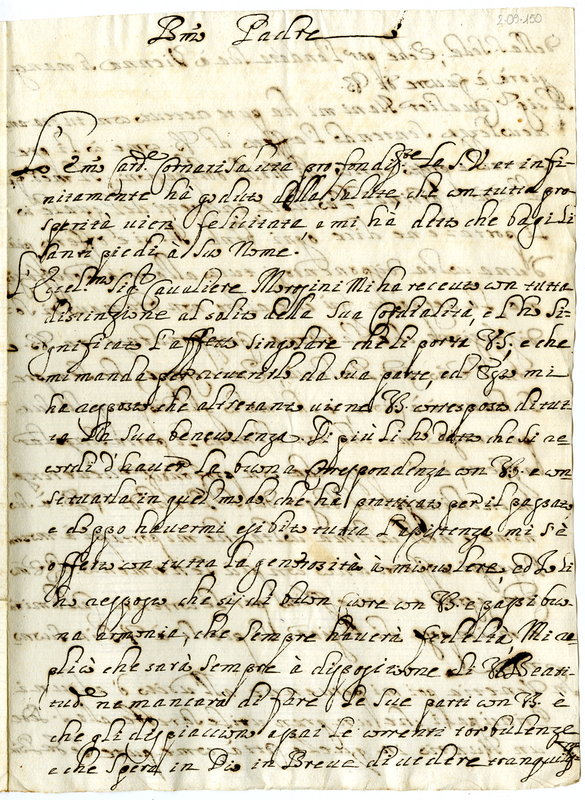 2-09-150
Bmo Padre
L'Emo Card. Cornari saluta profondissте La S. V. et infi-
nitamente hà goduto della salute, che con tutta pro-
sperità vien felicitata, e mi hà detto che bagi Li
santi piedi à Suo Nome.
L'Eccel.mo Sig.r Cavaliere Morosini Mi ha receuto con tutta
distinzione al solito della Sua Cordialità, e L'hò Si-
gnificato L'affetto singolare che Li porta VB. e che
mi manda per riverirlo da sua parte, ed Egli mi
ha risposto che altretanto viene VB. corrisposto di tut-
ta In sua benevolenza. Di più Li hò detto che si ri-
cordi d'haver La buona Correspondenza con VB. e con
situarla in quel modo che hà pratticato per il passato
e doppo havermi esibito tutta L'assistenza mi s'è
offerto con tutta La generosità à mi volere, ed Io Li
hò risposto che sij di buon cuore con VB. e passi buo-
na armonia, che sempre haverà fedeltà, Mi re-
plicò che sarà sempre à disposizione di VBeati-
tud.e ne mancarà di fare Le Sue parti con VB. è
che gli dispiacciono assai Le correnti torbulenze
e che Spera in Dio in Breve di vedere tranquill